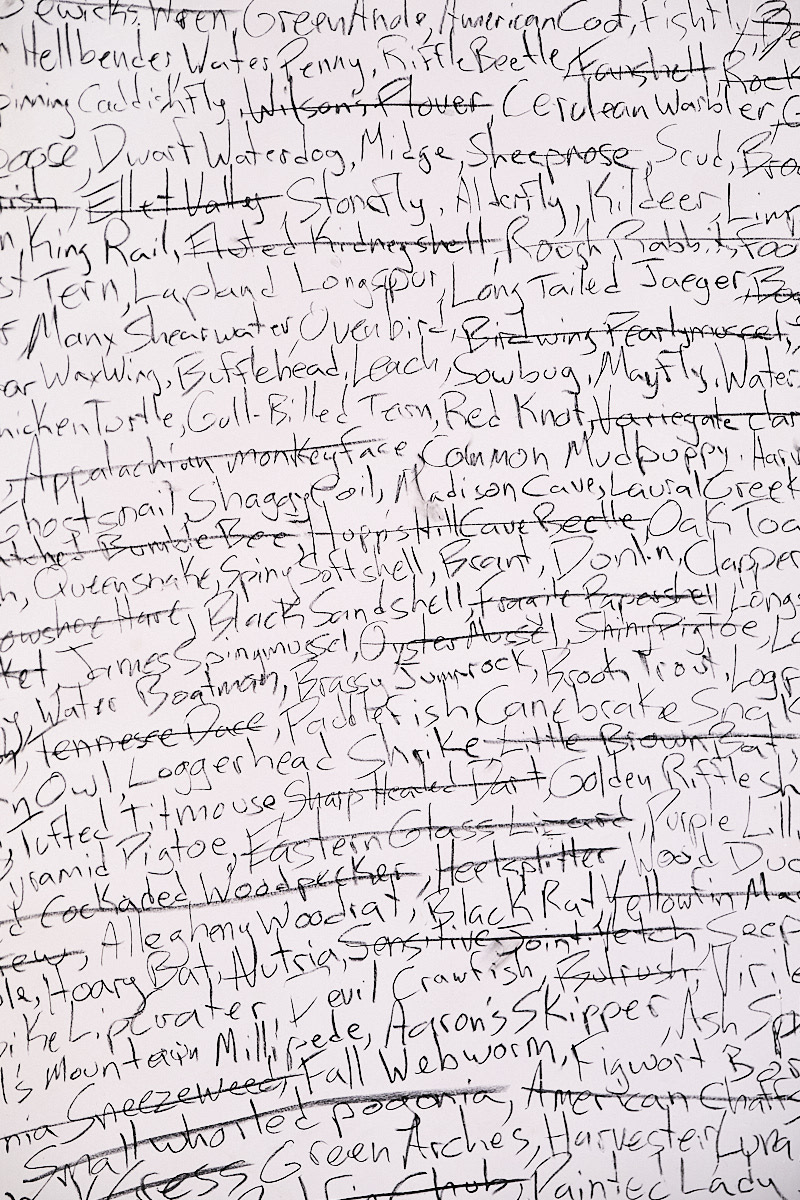 Bewicks Wren, Green Anole, American Coot, Fishfly,
Hellbender Water Penny, Riffle Beetle, Fanshell, Rock
Spinning Caddisfly, Wilson's Plover, Cerulean Warbler,
Dwarf Waterdog, Midge, Sheepnose, Scud,
Ellet Valley, Stonefly, Alderfly, Kildeer,
King Rail, Fluted Kidneyshell, Rough Rabbits Foot
Tern, Lapland Longspur, Long Tailed Jaeger,
Manx Shearwater, Ovenbird, Birdwing Pearlymussel,
WaxWing, Bufflehead, Leach, Sowbug, MayFly, Water
ChickenTurtle, Gull-Billed Tern, Red Knot, Variegate Dar
Appalachian monkeyface, Common Mudpuppy,
Ghostsnail, Shaggy Coil, Madison Cave, Laural Creek
Bumble Bee, Hupp's Hill Cave Beetle, Oak Toa
Queensnake, Spiny Softshell, Brant, Dunlin, Clapper
Black Sandshell, Fragile Papershell, Long
James Spinymussel, Oyster Mussel, Shiny Pigtoe,
Water Boatman, Brassy Jumprock, Brook Trout, Logp
Tennesse Dace, Paddlefish, Canebrake Snak
Owl, Loggerhead Shrike, Little Brown Bat,
Tufted Titmouse, Sharpheaded Dart, Golden Riffle sh
Pyramid Pigtoe, Eastern Glass Lizard, Purple Lill
Cockaded Woodpecker, Heelsplitter, Wood Duc
Allegheny Woodrat, Black Rat, Yellowfin Mad
Hoary Bat, Nutria, Sensitive Joint-Vetch, Seep
Devil Crawfish, Bulrush, Virile
Mountain Millipede, Aaron's Skipper, Ash Sp
Sneezeweed, Fall Webworm, Figwort
Small whorled pogonia, American Chaffs
Cress, Green Arches, Harvester, Luna
Chub, Painted Lady